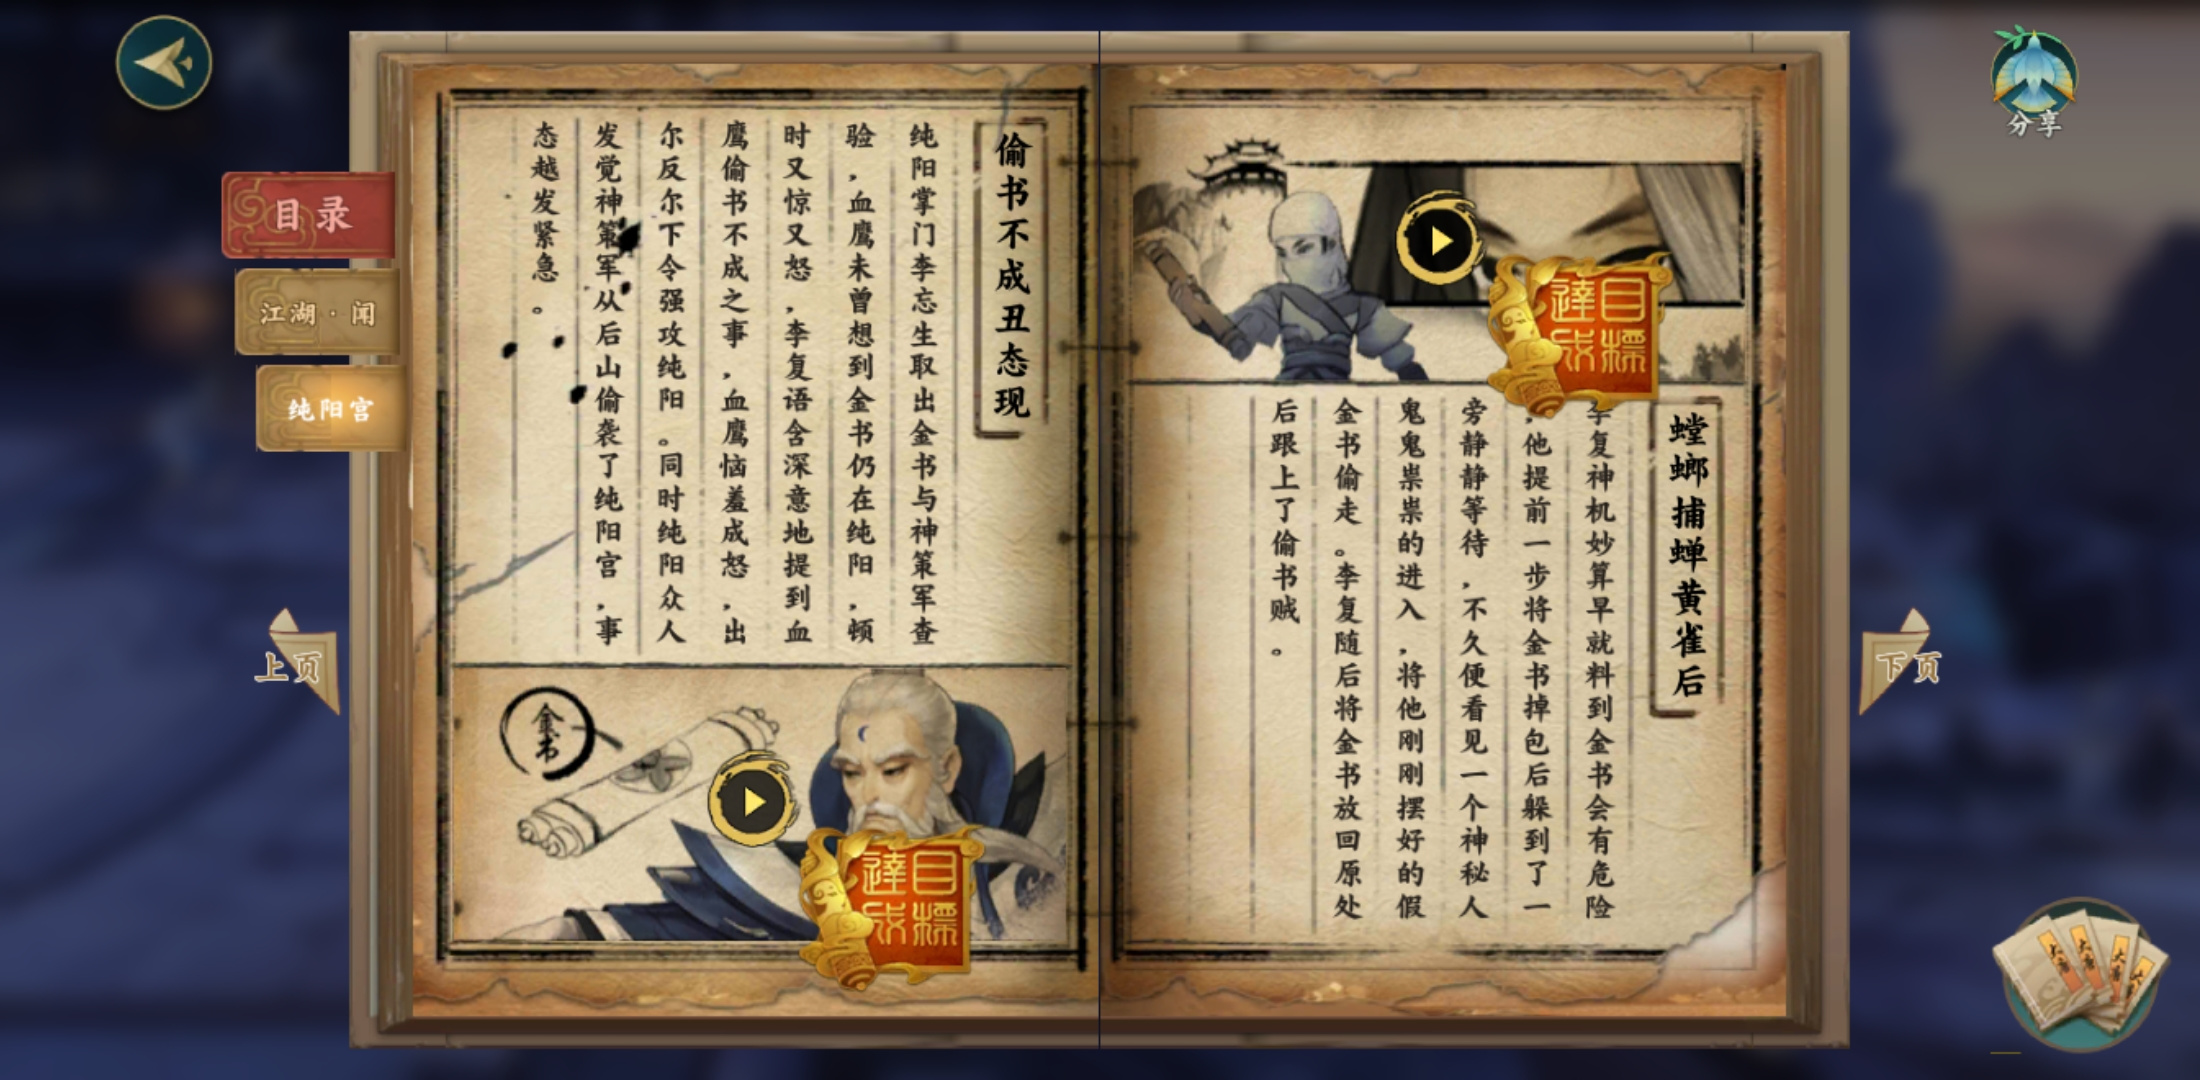 分享
目录
江湖·闻
纯阳宫
螳螂捕蝉黄雀后
李复神机妙算早就料到金书会有危险
，他提前一步将金书掉包后躲到了一
旁静静等待，不久便看见一个神秘人
鬼鬼祟祟的进入，将他刚刚摆好的假
金书偷走。李复随后将金书放回原处
后跟上了偷书贼。
目標
達成
偷书不成丑态现
纯阳掌门李忘生取出金书与神策军查
验，血鹰未曾想到金书仍在纯阳，顿
时又惊又怒，李复语含深意地提到血
鹰偷书不成之事，血鹰恼羞成怒，出
尔反尔下令强攻纯阳。同时纯阳众人
发觉神策军从后山偷袭了纯阳宫，事
态越发紧急。
金书
目標
達成
上页
下页